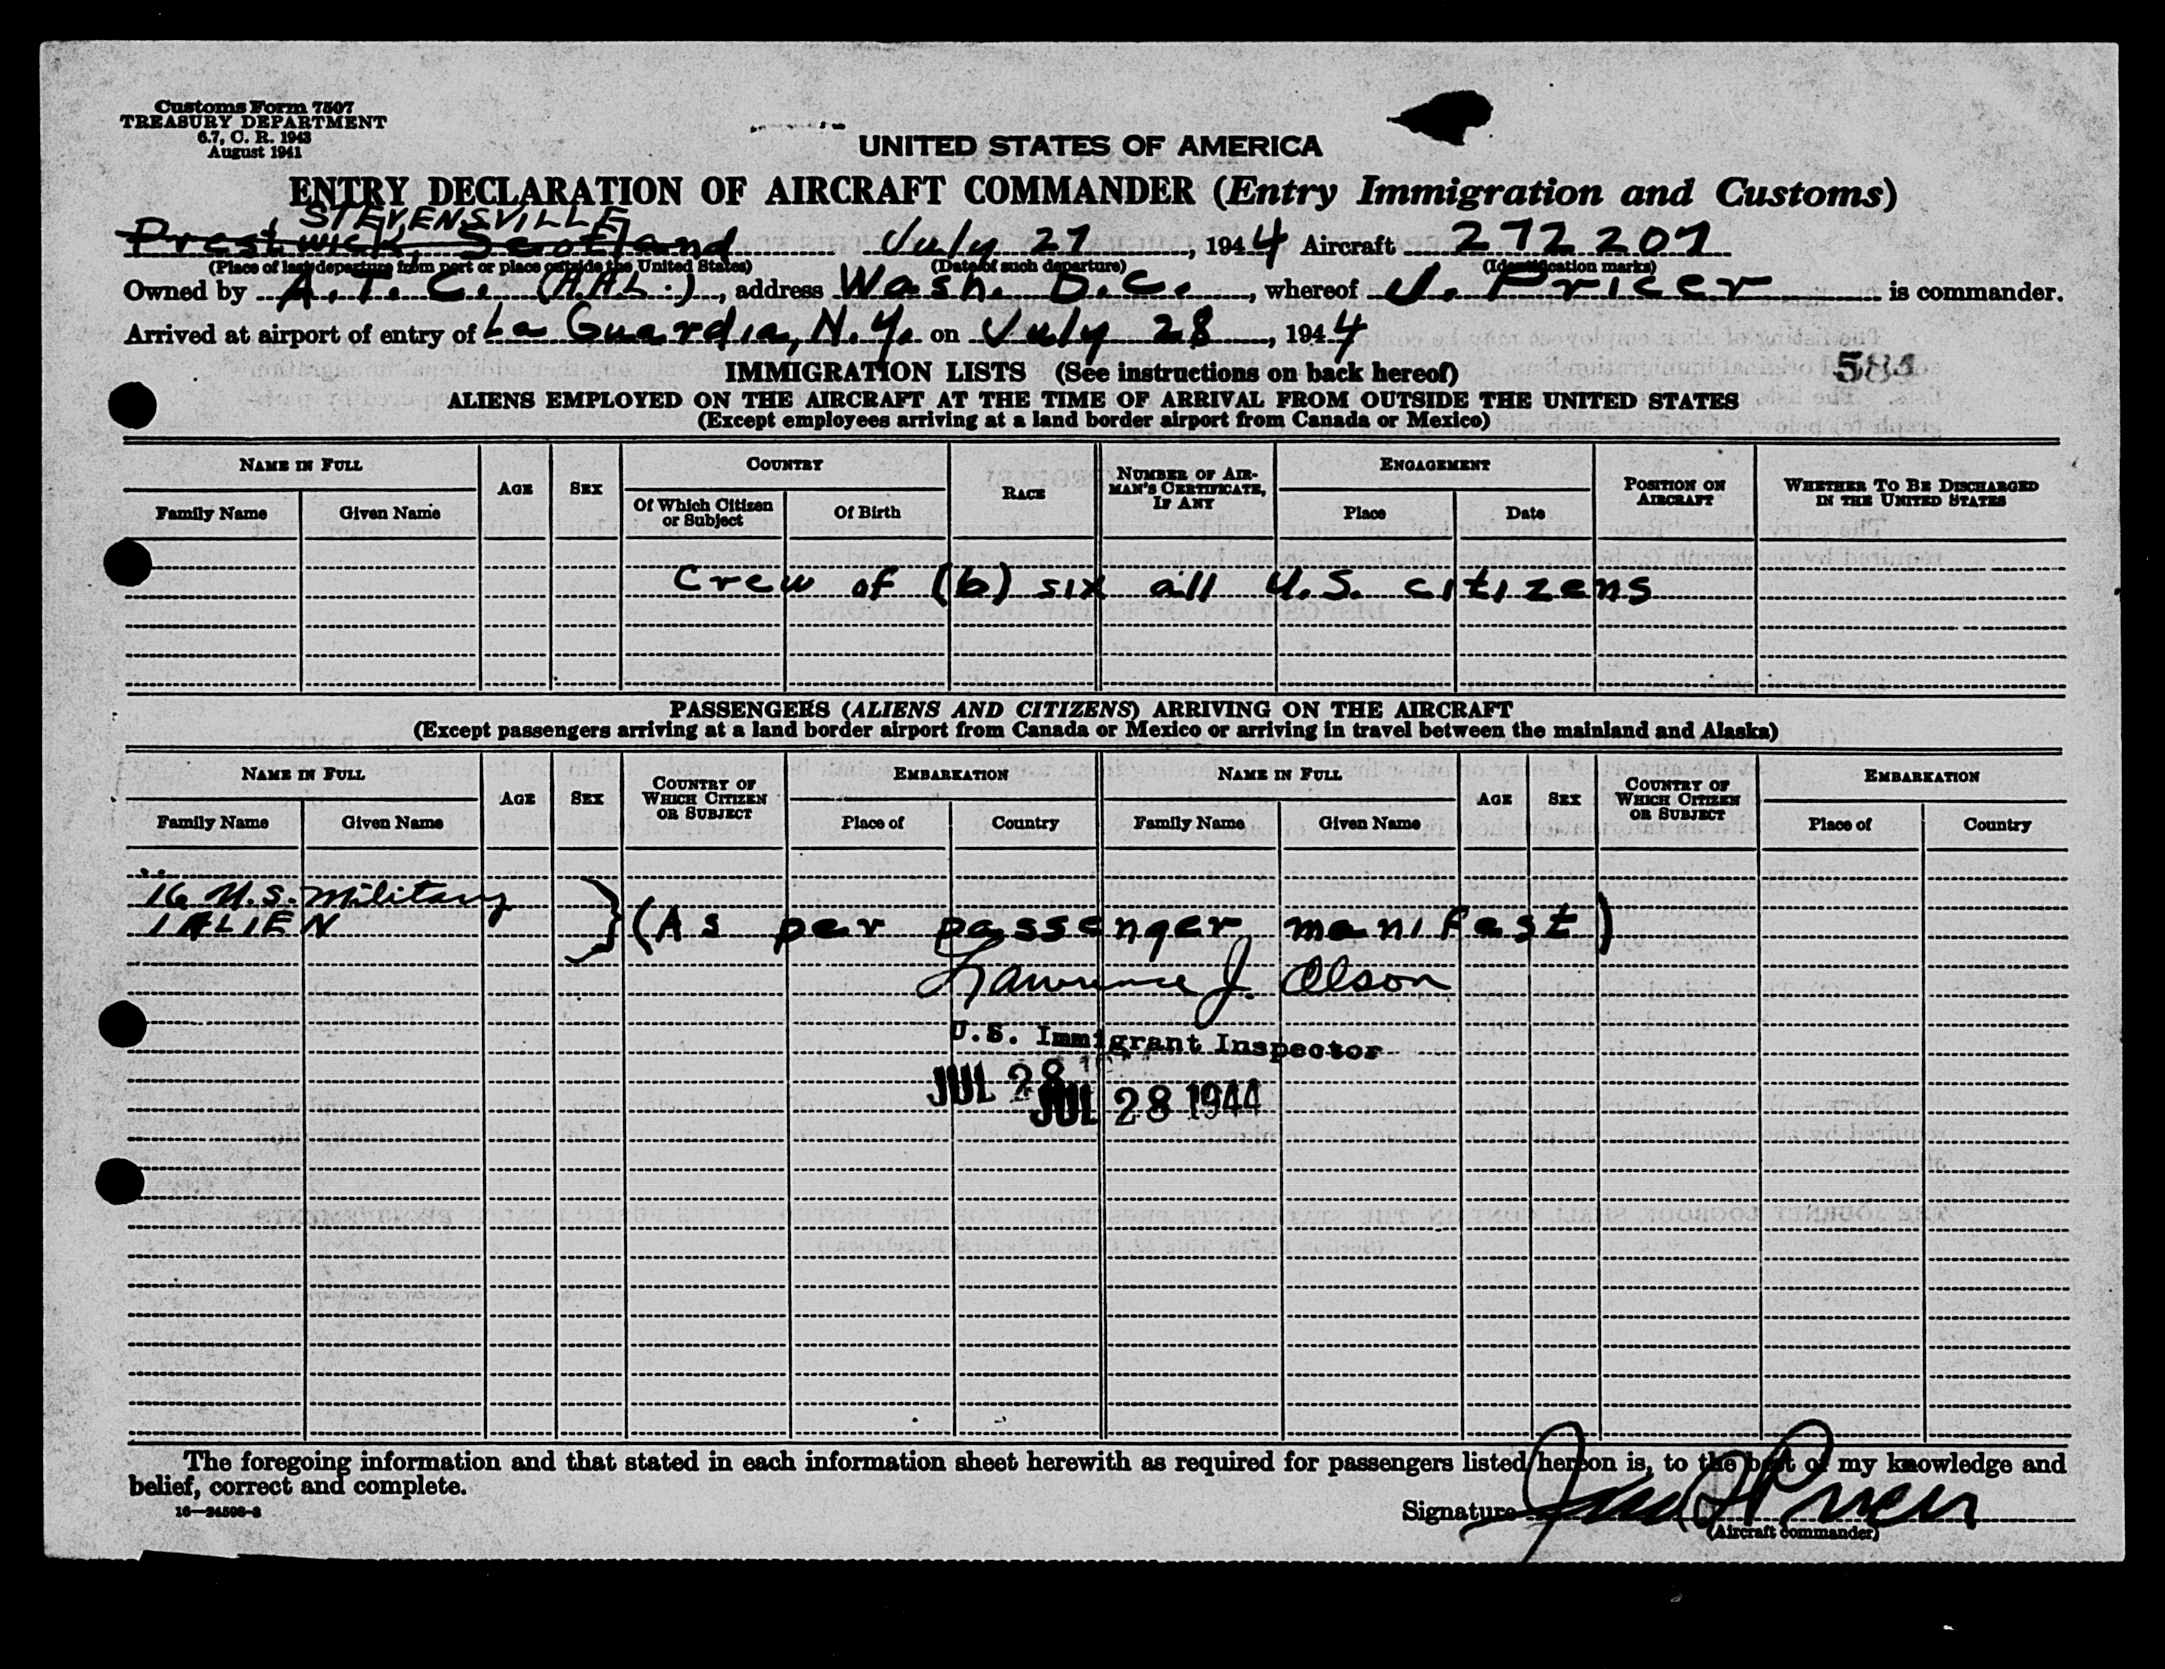 Customs Form 7507
TREASURY DEPARTMENT
6.7, C. R. 1943
August 1941
UNITED STATES OF AMERICA
ENTRY DECLARATION OF AIRCRAFT COMMANDER (Entry Immigration and Customs)
STEVENSVILLE
Prestwick, Scotland July 27, 1944 Aircraft 272207
(Place of last departure from port or place outside the United States) (Date of such departure) (Identification marks)
Owned by A.T.C. (A.A.L.), address Wash. D.C., whereof J. Pricer is commander.
Arrived at airport of entry of La Guardia, N.Y. on July 28, 1944
IMMIGRATION LISTS (See instructions on back hereof)
ALIENS EMPLOYED ON THE AIRCRAFT AT THE TIME OF ARRIVAL FROM OUTSIDE THE UNITED STATES
(Except employees arriving at a land border airport from Canada or Mexico)
NAME IN FULL AGE SEX COUNTRY RACE NUMBER OF AIRMAN'S CERTIFICATE, IF ANY ENGAGEMENT POSITION ON AIRCRAFT WHETHER TO BE DISCHARGED IN THE UNITED STATES
Family Name Given Name Of Which Citizen or Subject Of Birth Place Date
Crew of (6) six all U.S. citizens
PASSENGERS (ALIENS AND CITIZENS) ARRIVING ON THE AIRCRAFT
(Except passengers arriving at a land border airport from Canada or Mexico or arriving in travel between the mainland and Alaska)
NAME IN FULL AGE SEX COUNTRY OF WHICH CITIZEN OR SUBJECT EMBARKATION NAME IN FULL AGE SEX COUNTRY OF WHICH CITIZEN OR SUBJECT EMBARKATION
Family Name Given Name Place of Country Family Name Given Name Place of Country
16 U.S. Military
1 ALIEN } (As per passenger manifest)
Lawrence J. Olson
U.S. Immigrant Inspector
JUL 28
JUL 28 1944
The foregoing information and that stated in each information sheet herewith as required for passengers listed hereon is, to the best of my knowledge and
belief, correct and complete.
16—24596-2
Signature
(Aircraft commander)